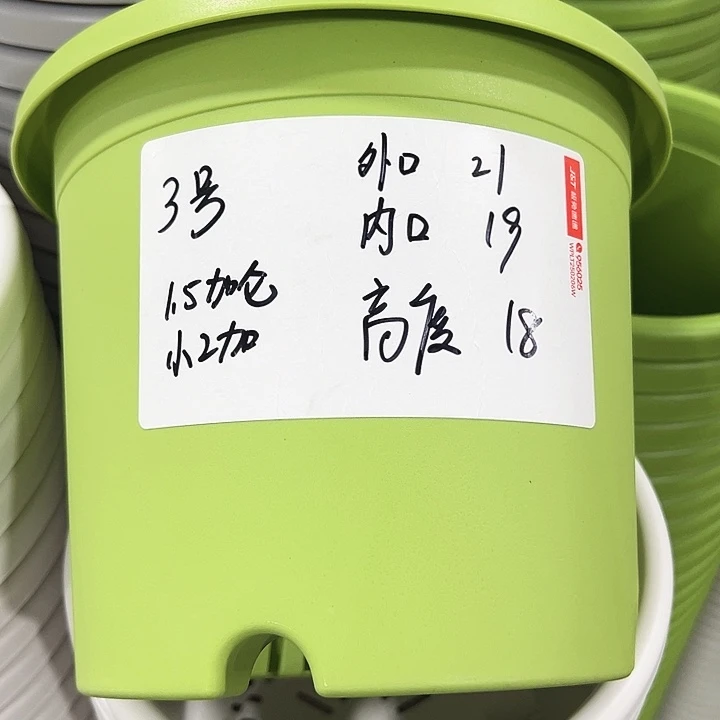 3号
1.5加仑
小2加
外口 21
内口 19
高度 18
J&T 极兔速递
956025